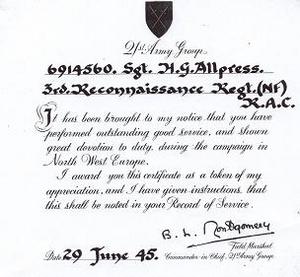 21st Army Group.
6914560. Sgt. H.G. Allpress.
3rd. Reconnaissance Regt. (NF)
R.A.C.
It has been brought to my notice that you have
performed outstanding good service, and shown
great devotion to duty, during the campaign in
North West Europe.
I award you this certificate as a token of my
appreciation, and I have given instructions that
this shall be noted in your Record of Service.
B. L. Montgomery
Field Marshal
Date 29 June 45. Commander in Chief, 21st Army Group